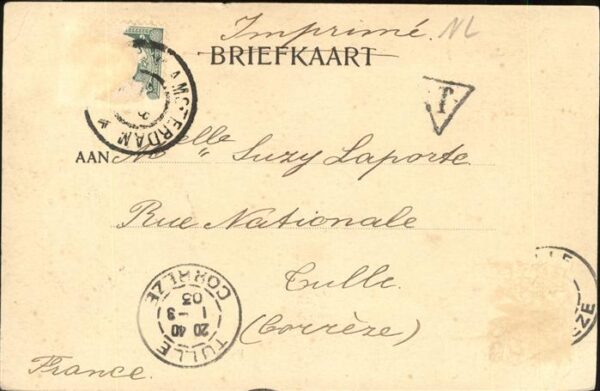 Imprimé. NL
BRIEFKAART
AMSTERDAM
T
AAN Melle " Suzy Laporte.
Rue Nationale
Tulle.
(Corrèze)
TULLE
20 40
1 - 9
03
CORREZE
LLE
EZE
France.